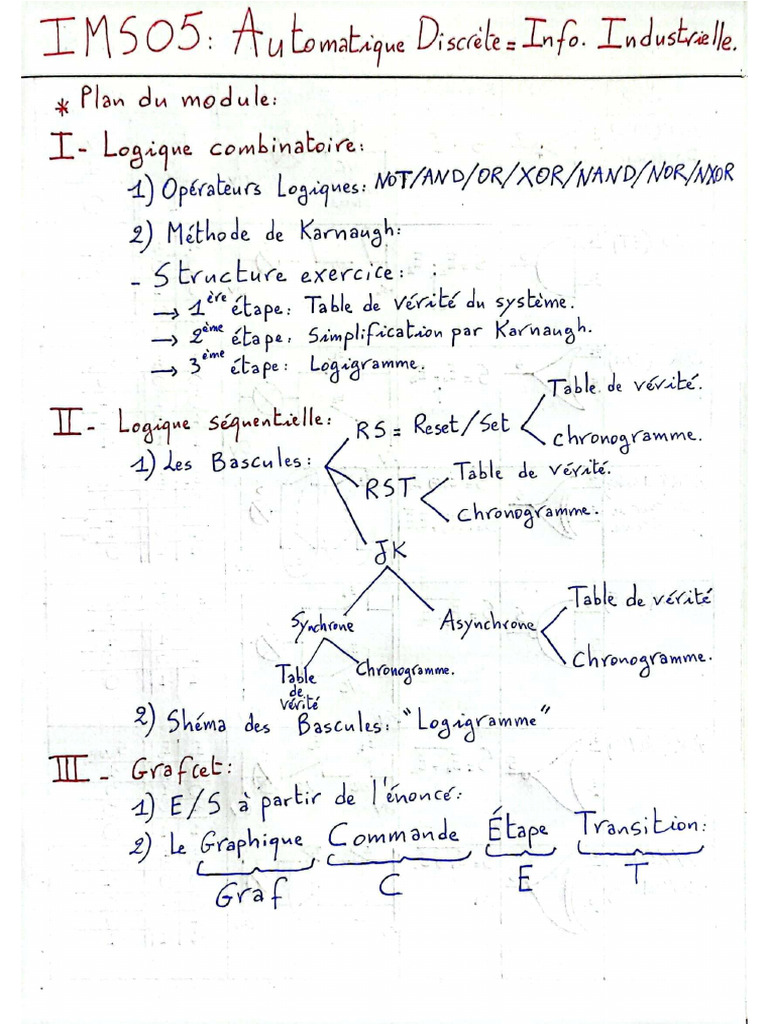 IMS05: Automatique Discrète = Info. Industrielle.
* Plan du module:
I - Logique combinatoire:
1) Opérateurs Logiques: NOT/AND/OR/XOR/NAND/NOR/NXOR
2) Méthode de Karnaugh:
- Structure exercice: :
→ 1ère étape: Table de vérité du système.
→ 2ème étape: Simplification par Karnaugh.
→ 3ème étape: Logigramme.
II - Logique séquentielle:
1) Les Bascules:
RS = Reset/Set
Table de vérité.
chronogramme.
RST
Table de vérité.
Chronogramme.
JK
Synchrone
Table de vérité
Chronogramme.
Asynchrone
Table de vérité
Chronogramme.
2) Shéma des Bascules: "Logigramme"
III - Grafcet:
1) E/S à partir de l'énoncé:
2) Le Graphique Commande Étape Transition:
Graf C E T